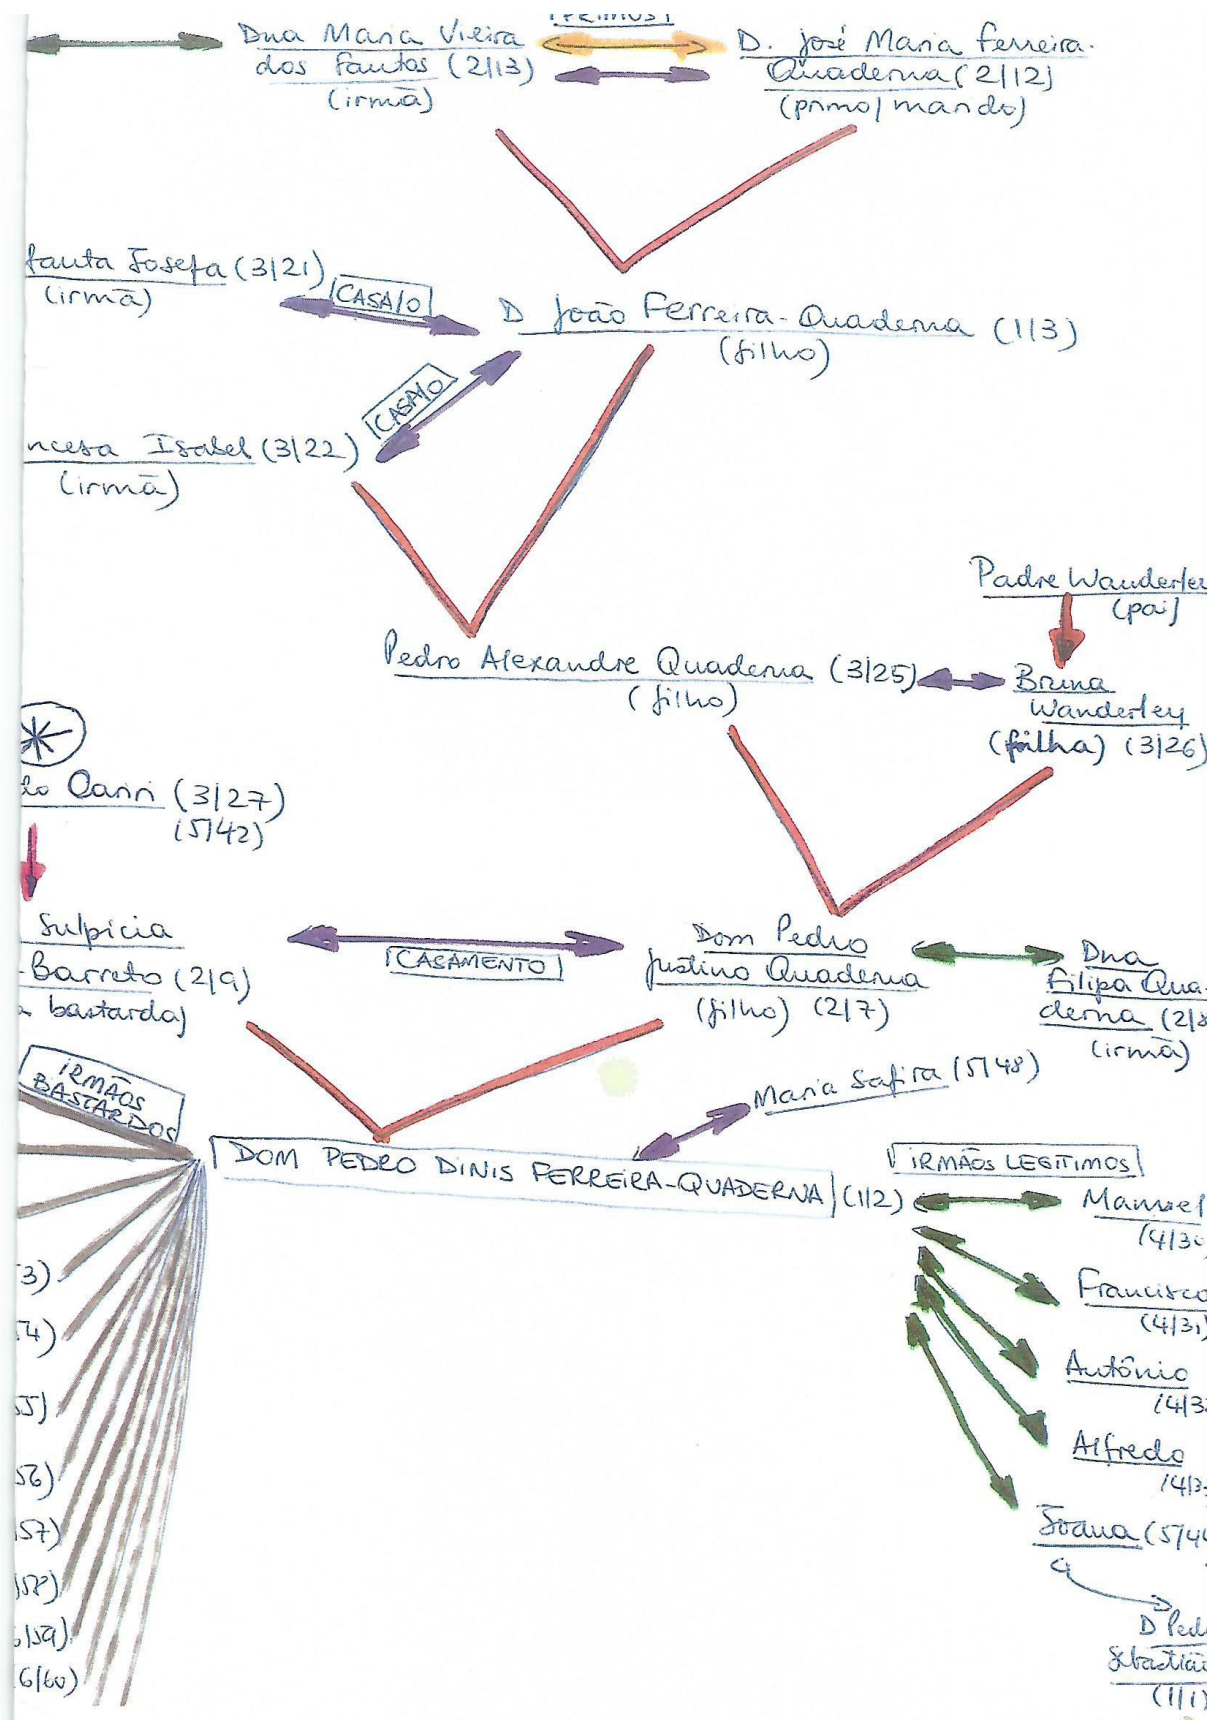 (PRIMOS)
Dna Maria Vieira
dos Santos (2/13)
(irmã)
D. José Maria Ferreira-
Quaderna (2/12)
(primo/marido)
Josefa (3/21)
(irmã)
CASA/O
D João Ferreira-Quaderna (1/3)
(filho)
CASA/O
Isabel (3/22)
(irmã)
Padre Wanderley
(pai)
Pedro Alexandre Quaderna (3/25)
(filho)
Bruna
Wanderley
(filha) (3/26)
Cariri (3/27)
(5/42)
Sulpícia
-Barreto (2/9)
bastarda)
CASAMENTO
Dom Pedro
Justino Quaderna
(filho) (2/7)
Dna
Filipa Qua-
derna (2/8
(irmã)
IRMÃOS
BASTARDOS
Maria Safira (5/48)
DOM PEDRO DINIS FERREIRA-QUADERNA (1/2)
IRMÃOS LEGÍTIMOS
Manuel
(4/30
Francisco
(4/31)
Antônio
(4/3
Alfredo
(4/3
Joana (5/44
3)
4)
55)
56)
57)
58)
6/59)
6/60)
D Ped
Sebastião
(1/1)